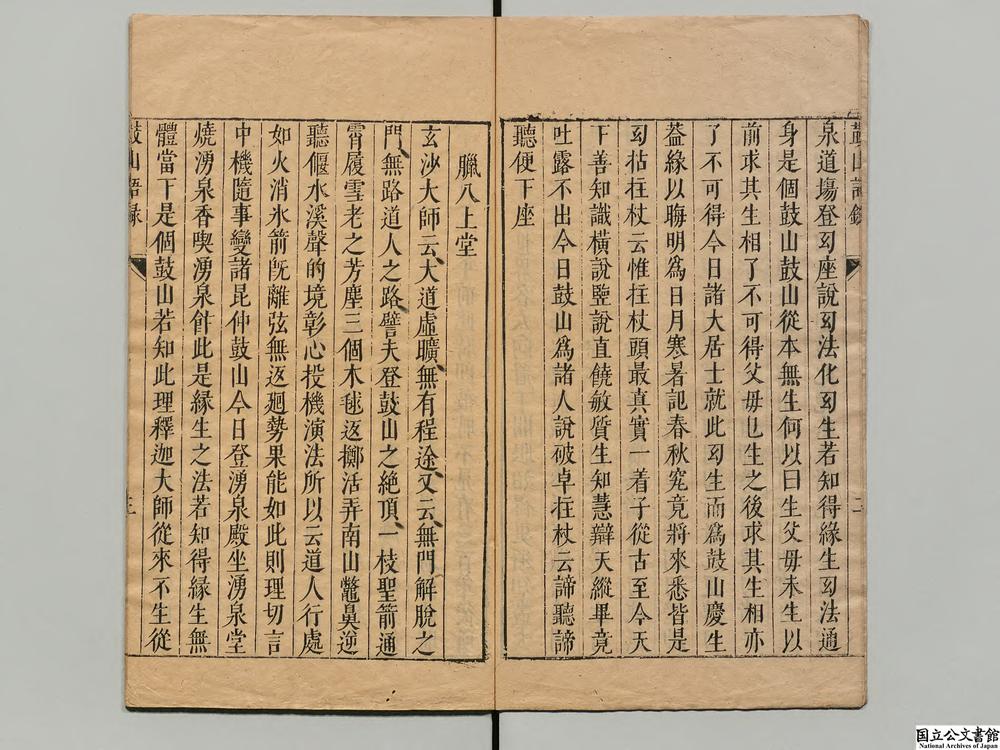 鼓山語錄 二
泉道塲登幻座說幻法化幻生若知得緣生幻法通
身是個鼓山鼓山從本無生何以曰生父母未生以
前求其生相了不可得父母已生之後求其生相亦
了不可得今日諸大居士就此幻生而爲鼓山慶生
葢緣以晦明爲日月寒暑記春秋究竟將來悉皆是
幻拈拄杖云惟拄杖頭最真實一着子從古至今天
下善知識橫說豎說直饒敏質生知慧辯天縱畢竟
吐露不出今日鼓山爲諸人說破卓拄杖云諦聽諦
聽便下座
臘八上堂
玄沙大師云、大道虛曠、無有程途、又云、無門解脫之
門、無路道人之路、譬夫登鼓山之絕頂、一枝聖箭通
霄履雪老之芳塵三個木毬返擲活弄南山鼈鼻逆
聽偃水溪聲的境彰心投機演法所以云道人行處
如火消氷箭旣離弦無返廻勢果能如此則理切言
中機隨事變諸昆仲鼓山今日登湧泉殿坐湧泉堂
燒湧泉香喫湧泉飰此是緣生之法若知得緣生無
體當下是個鼓山若知此理釋迦大師從來不生從
鼓山語錄 三
国立公文書館
National Archives of Japan